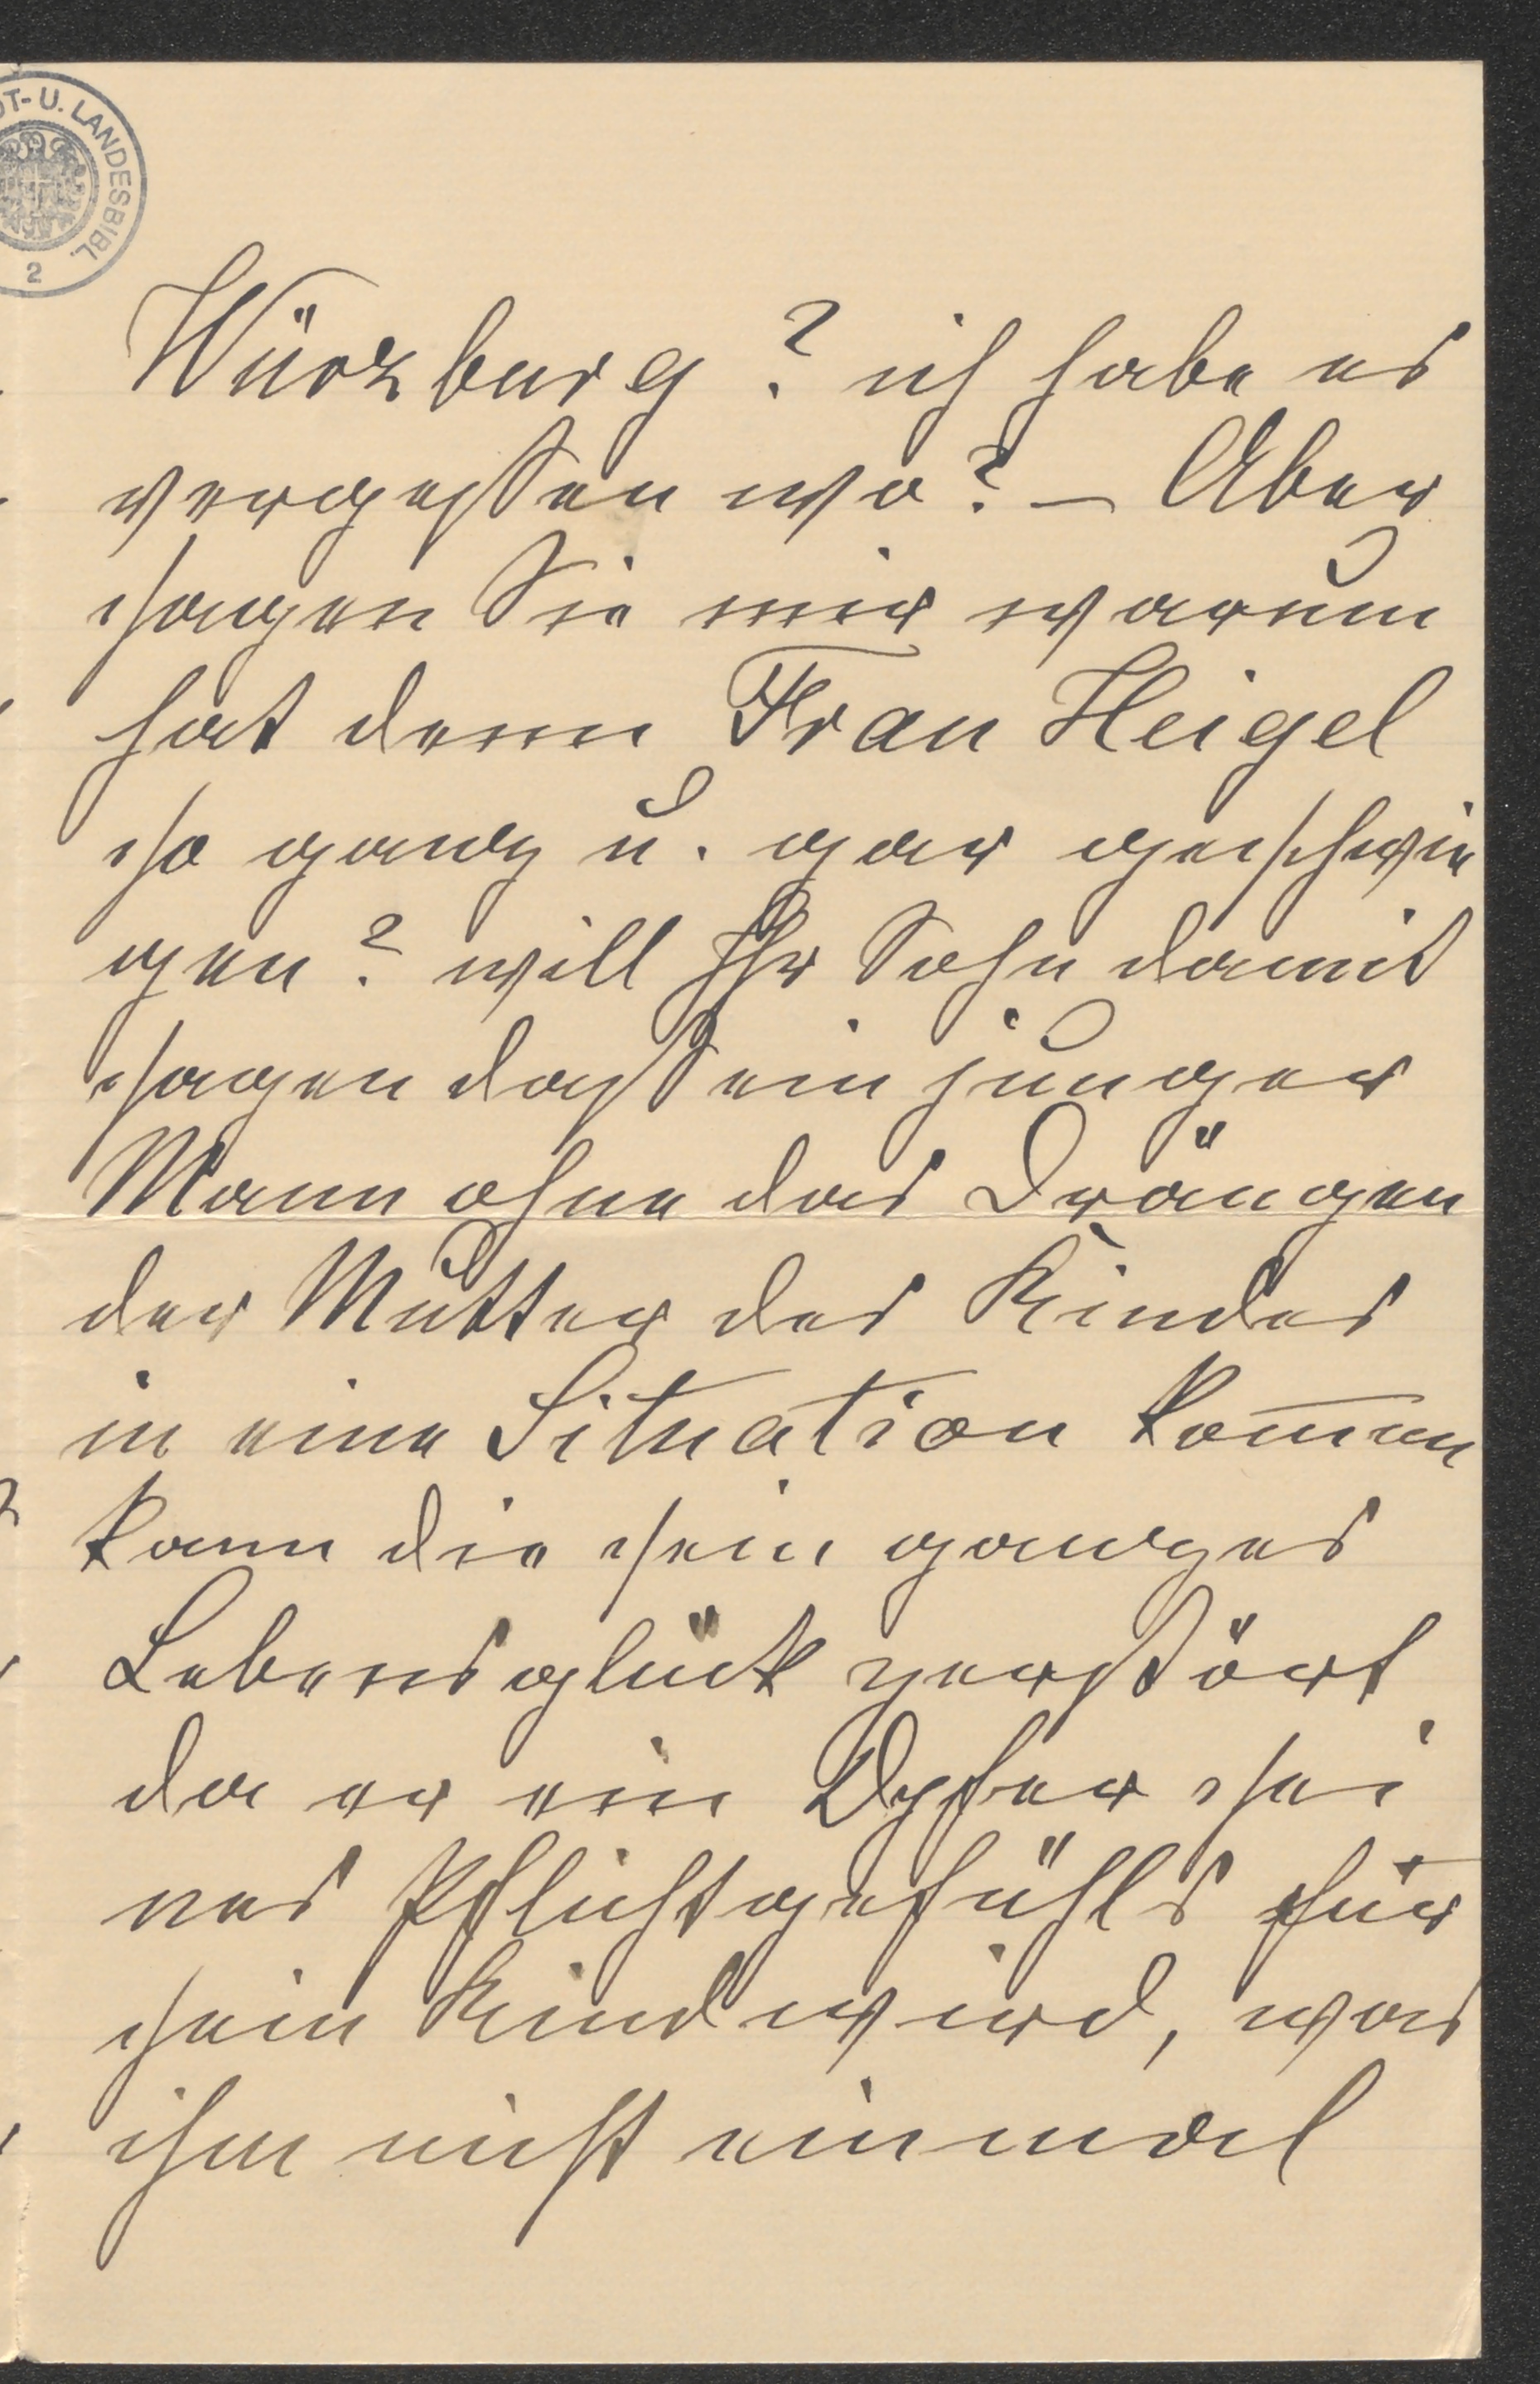 DT- U. LANDESBIBL.
2
Würzburg? ich habe es
vergessen wo? – Aber
sagen Sie mir warum
hat denn Frau Heigel
so ganz u. gar geschwie
gen? will Ihr Sohn damit
sagen daß ein junger
Mann ohne das Drängen
der Mutter des Kindes
in eine Situation kom̅en
kann die sein ganzes
Lebensglück zerstört
da er ein Opfer sei
nes Pflichtgefühls für
sein Kind wird, was
ihm nicht einmal